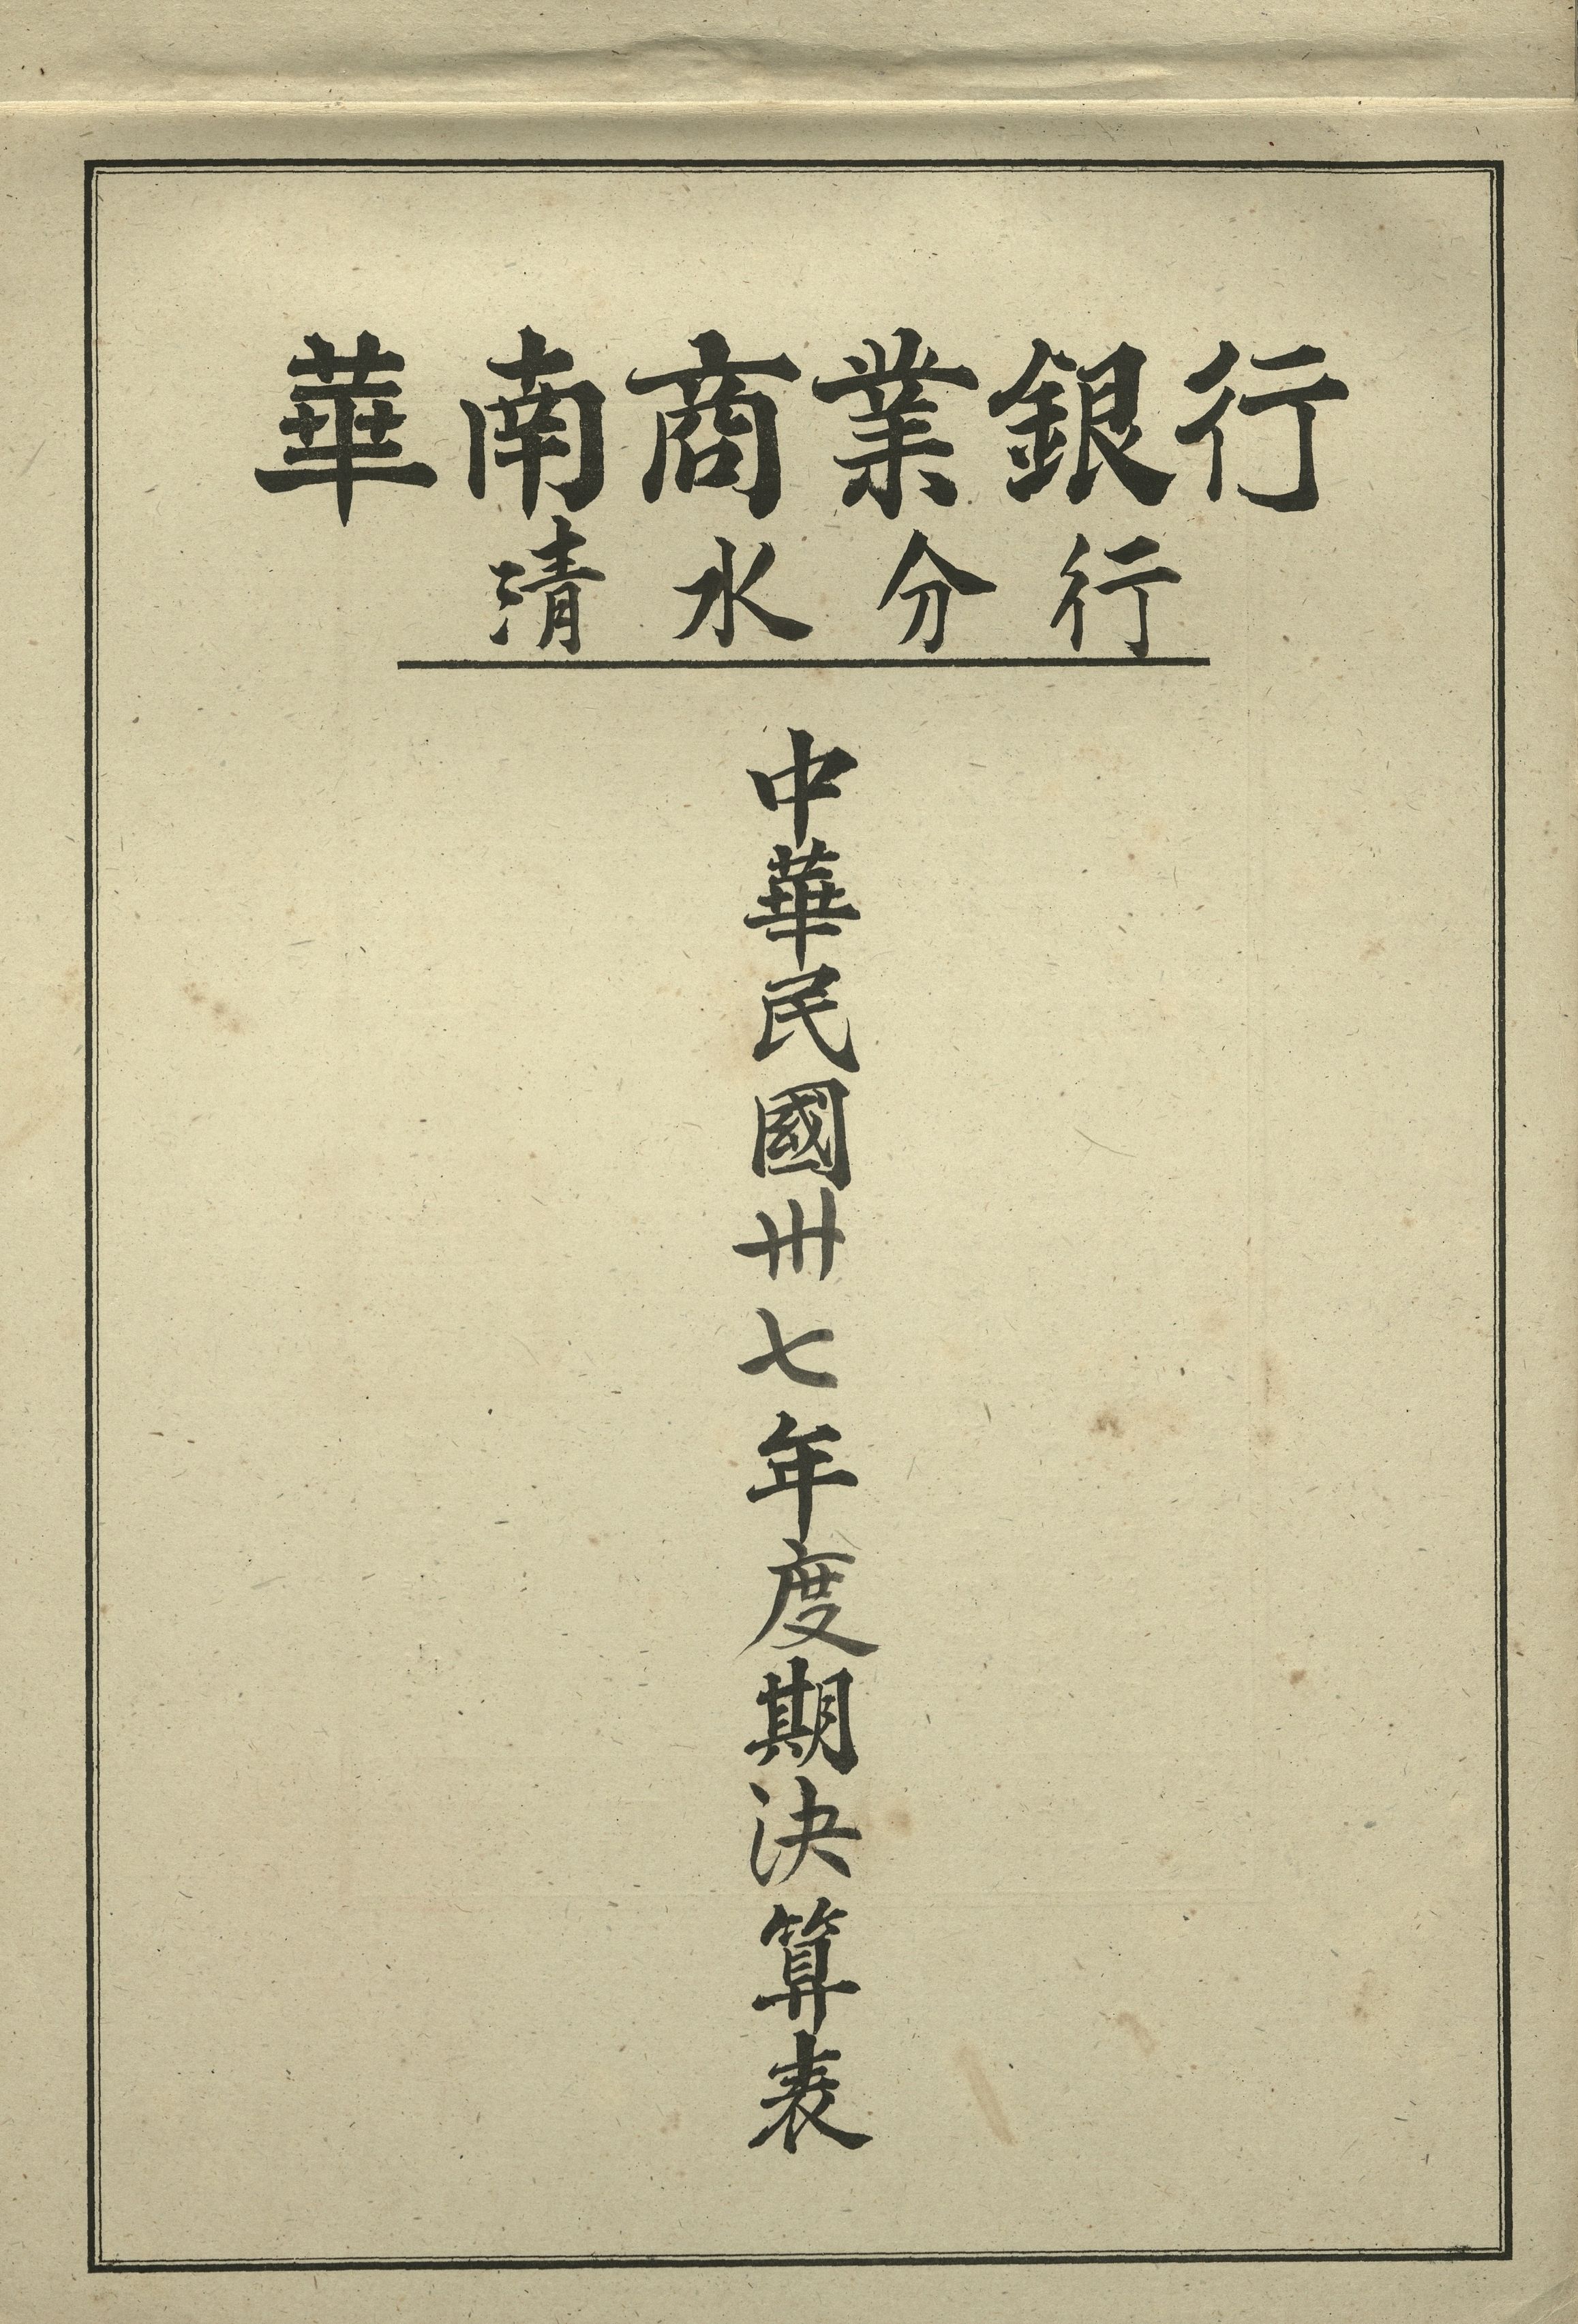 華南商業銀行
清水分行
中華民國卅七年度期決算表